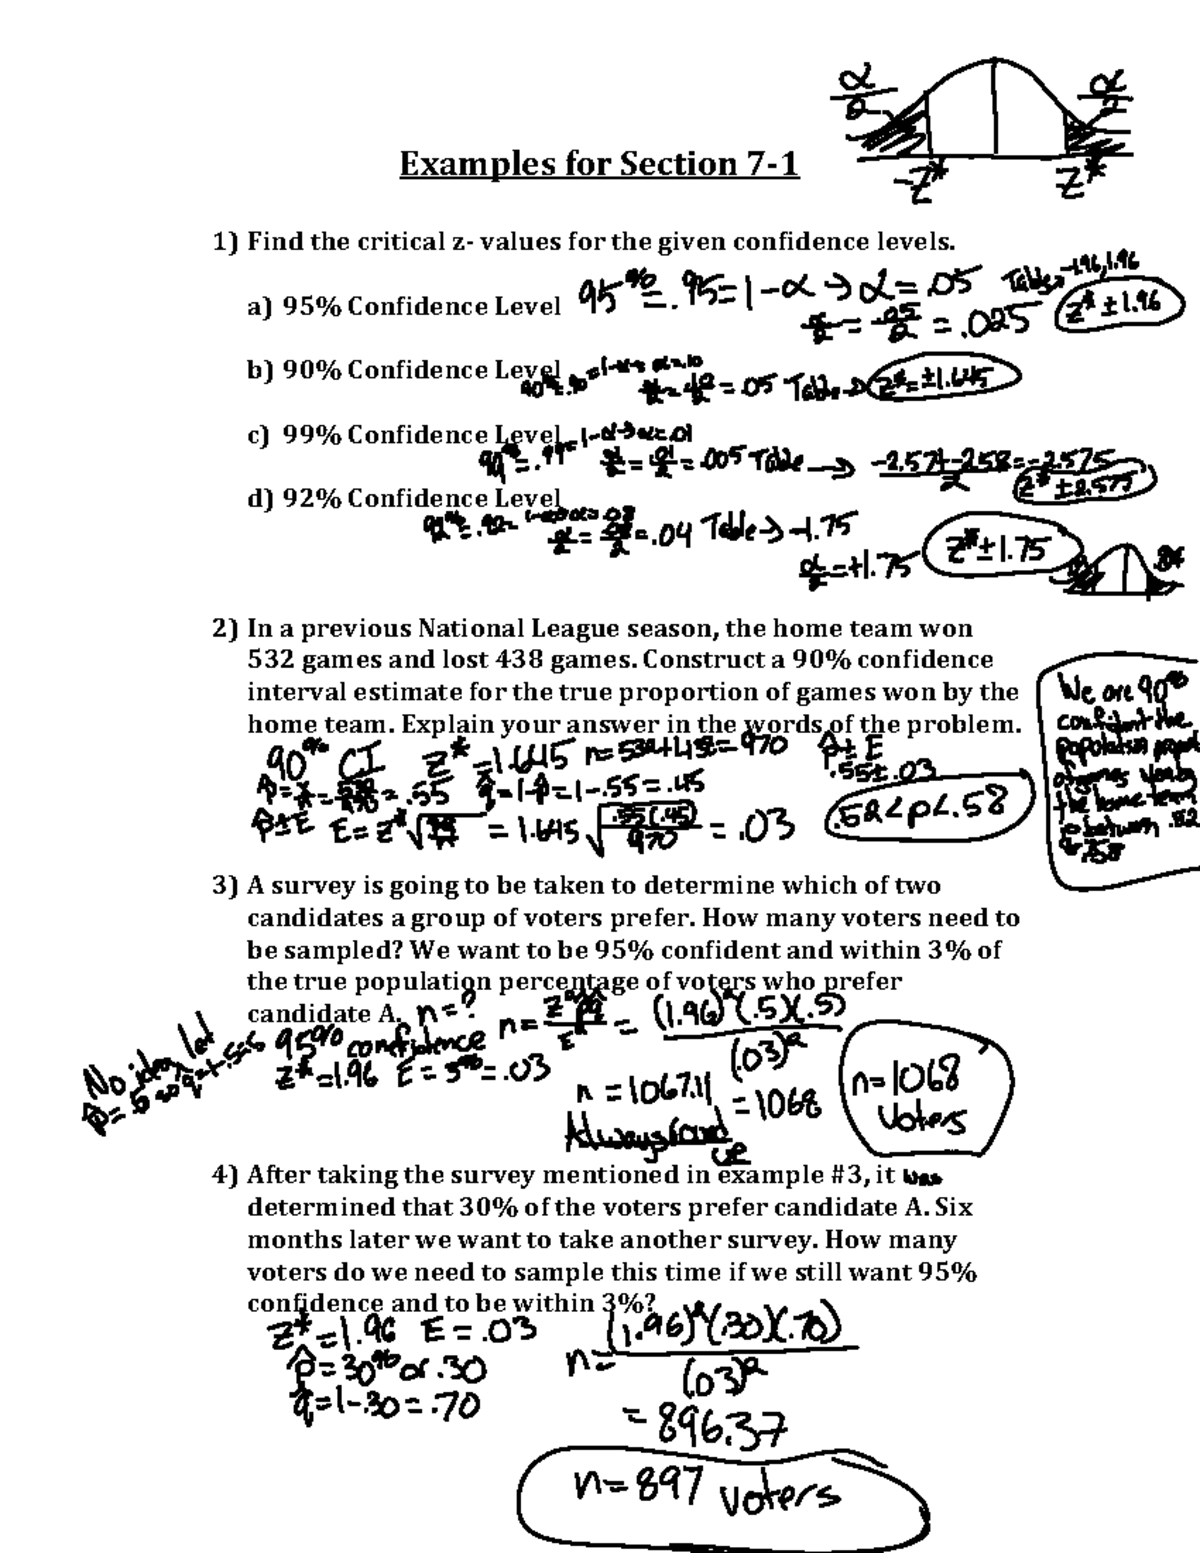 α/2 α/2
-z* z*
Examples for Section 7-1
1) Find the critical z- values for the given confidence levels.
a) 95% Confidence Level 95% = .95 = 1-α → α = .05 Table → -1.96, 1.96
α/2 = .05/2 = .025 z* ± 1.96
b) 90% Confidence Level 90% = .90 = 1-α → α=.10
α/2 = .10/2 = .05 Table → z* = ±1.645
c) 99% Confidence Level 99% = .99 = 1-α → α=.01
α/2 = .01/2 = .005 Table → -2.57+-2.58/2 = -2.575
z* ±2.575
d) 92% Confidence Level 92% = .92 = 1-α → α=.08
α/2 = .08/2 = .04 Table → -1.75
α/2 = +1.75 z* ±1.75
2) In a previous National League season, the home team won
532 games and lost 438 games. Construct a 90% confidence
interval estimate for the true proportion of games won by the
home team. Explain your answer in the words of the problem.
90% CI z* = 1.645 n = 532+438 = 970 p̂ ± E
p̂ = x/n = 532/970 = .55 q̂ = 1-p̂ = 1-.55 = .45 .55 ± .03
p̂ ± E E = z* √ = 1.645 √(.55)(.45)/970 = .03 .52 < p < .58
We are 90%
confident the
population
of games won by
the home team
is between .52
& .58
3) A survey is going to be taken to determine which of two
candidates a group of voters prefer. How many voters need to
be sampled? We want to be 95% confident and within 3% of
the true population percentage of voters who prefer
candidate A. n = ?
No idea let
p̂ = .5 so q̂ = 1-.5=.5
95% confidence n = z*²p̂q̂/E² = (1.96)²(.5)(.5)/(.03)²
z* = 1.96 E = 3% = .03
n = 1067.11 = 1068
Always round
up
n = 1068
voters
4) After taking the survey mentioned in example #3, it was
determined that 30% of the voters prefer candidate A. Six
months later we want to take another survey. How many
voters do we need to sample this time if we still want 95%
confidence and to be within 3%?
z* = 1.96 E = .03 n = (1.96)²(.30)(.70)/(.03)²
p̂ = 30% or .30
q̂ = 1-.30 = .70
= 896.37
n = 897 voters